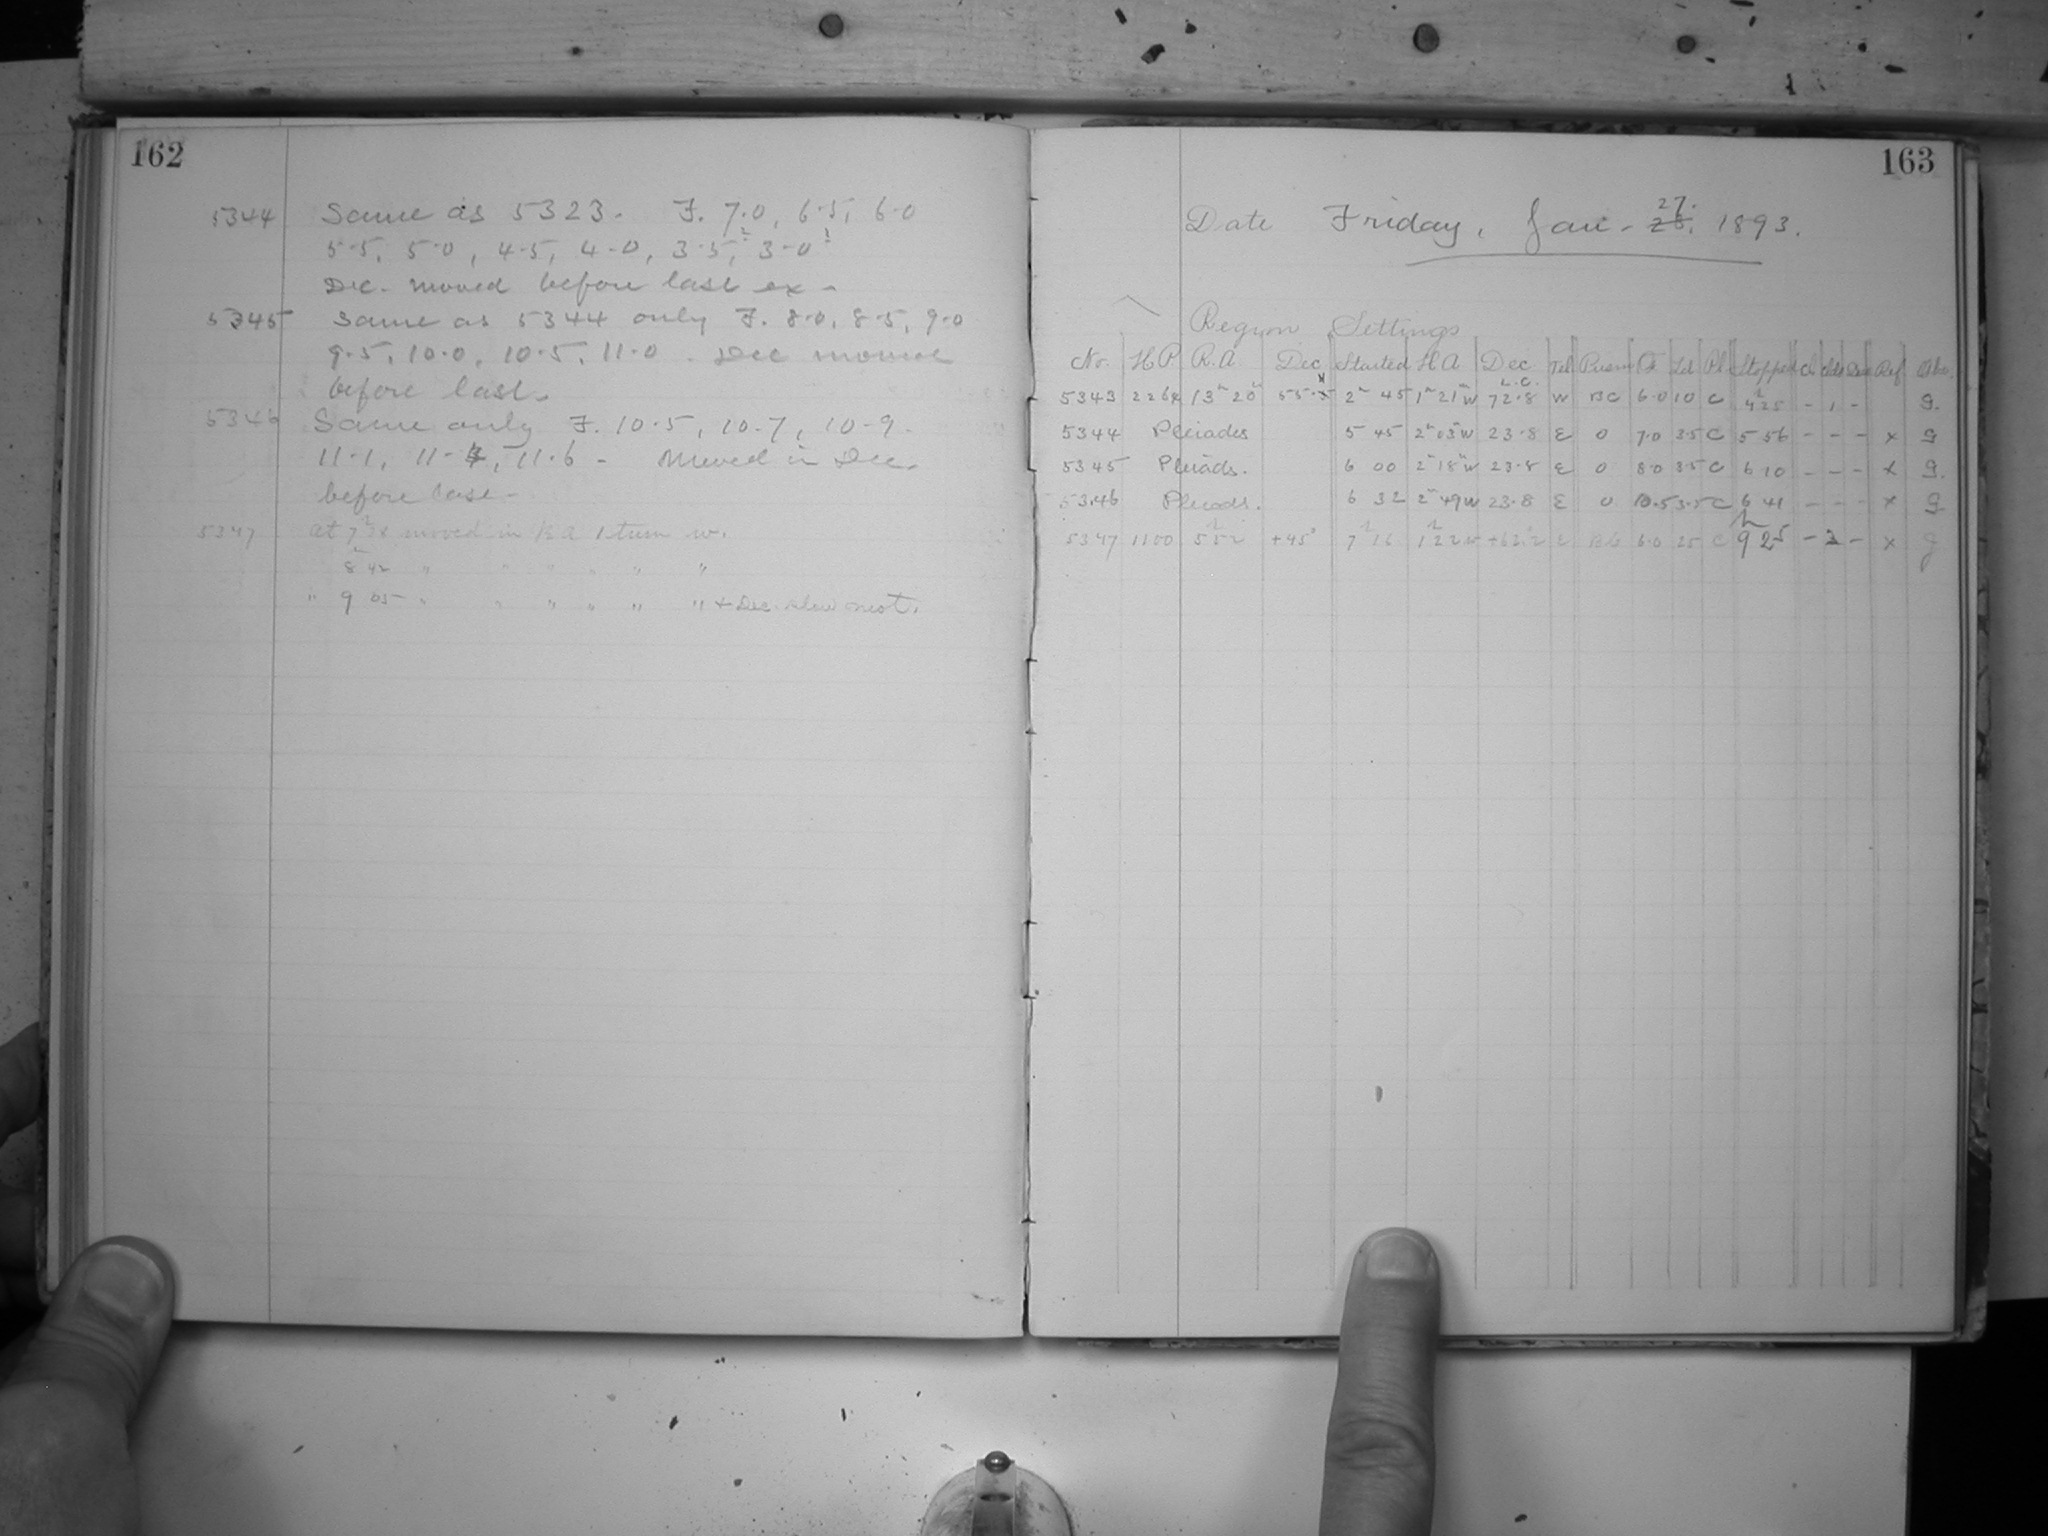 162
5344 Same as 5323. F. 7.0, 6.5, 6.0
5.5, 5.0, 4.5, 4.0, 3.5,? 3.0?
Dec. moved before last ex.
5345 Same as 5344 only F. 8.0, 8.5, 9.0
9.5, 10.0, 10.5, 11.0. Dec moved
before last.
5346 Same only F. 10.5, 10.7, 10.9.
11.1, 11.4, 11.6 - Moved in Dec.
before last.
5347 at 7 38 moved in R A 1 turn w.
8 42 " " " " " "
" 9 05 " " " " " " + Dec. slow mot.
163
Date Friday, Jan. 27. 28, 1893.
Region Settings
No. H P R. A Dec Started H A Dec Tel Prism F Ld Pl Stopped Ref Obs.
5343 13h 20m 55. 2h 45 1h 21m W 72.8 L.C. W BC 6.0 10 C 4h 25 - 1 - G.
5344 Pleiades 5 45 2h 03m W 23.8 E 0 7.0 3.5 C 5 56 - - - x G
5345 Pleiads. 6 00 2h 18m W 23.8 E 0 8.0 3.5 C 6 10 - - - x G.
5346 Pleiads. 6 32 2h 49 W 23.8 E 0 10.5 3.5 C 6 41 - - - x G
5347 1100 5h 52 +45° 7h 16 1h 22 +62.2 E 6.0 25 C 9h 25 - 3 - x